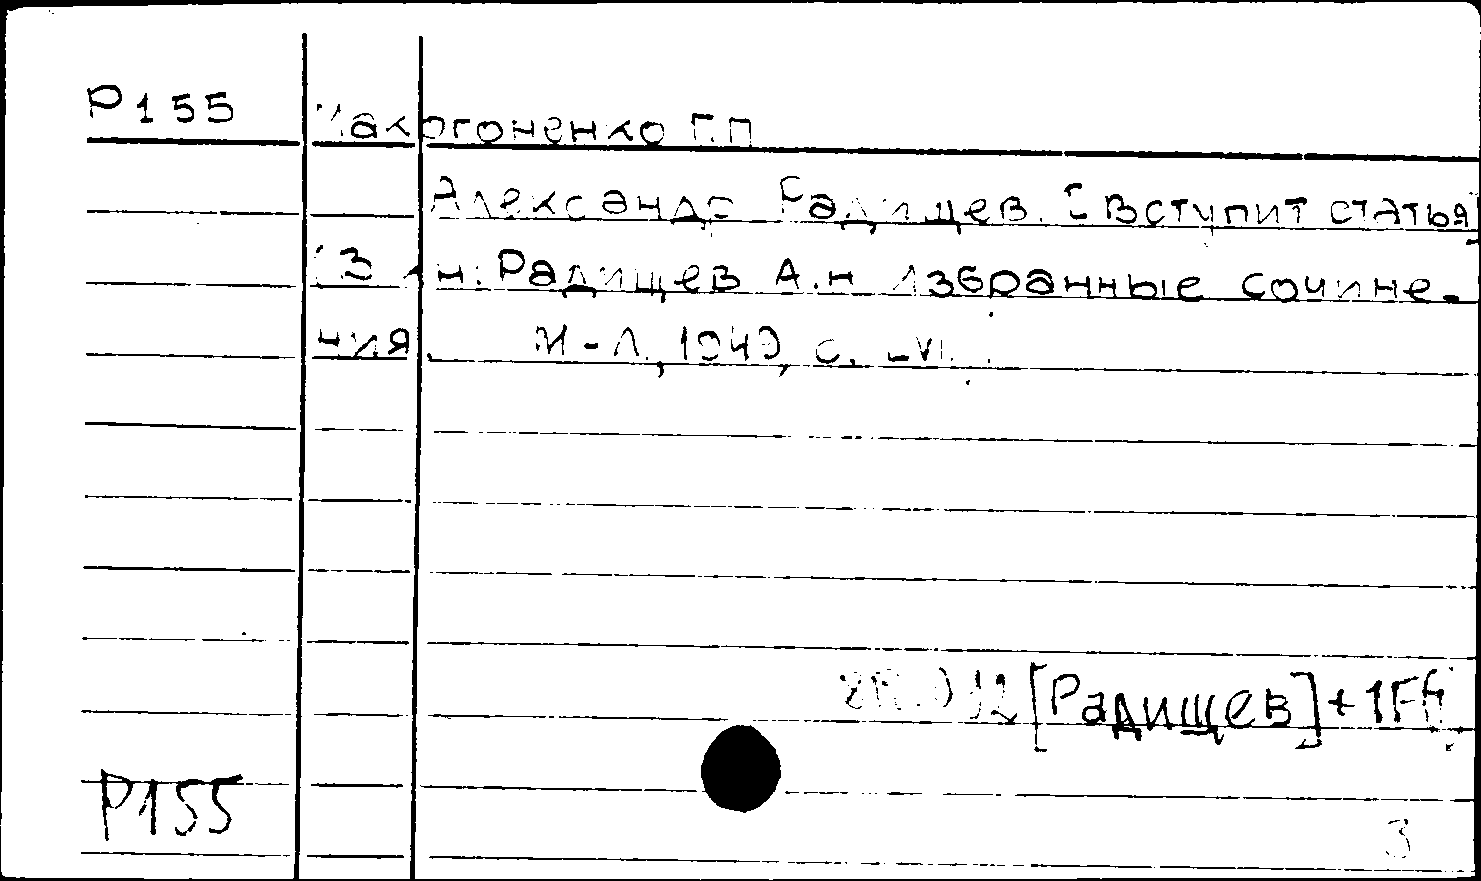 Р155 Макогоненко Г.П
Александр Радищев. [Вступит статья]
В кн: Радищев А.Н Избранные сочине-
ния. М-Л, 1949, с.
[Радищев]+1Ff
Р155
3